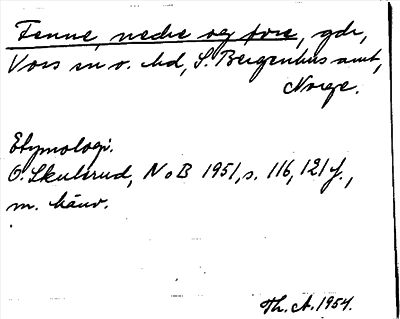 Fenne, nedre og øvre, gdr,
Vors sn o. hd, S. Bergenhus amt,
Norge.
Etymologi.
O. Skulerud, NoB 1951, s. 116, 121 f.,
m. hänv.
Th. A. 1954.